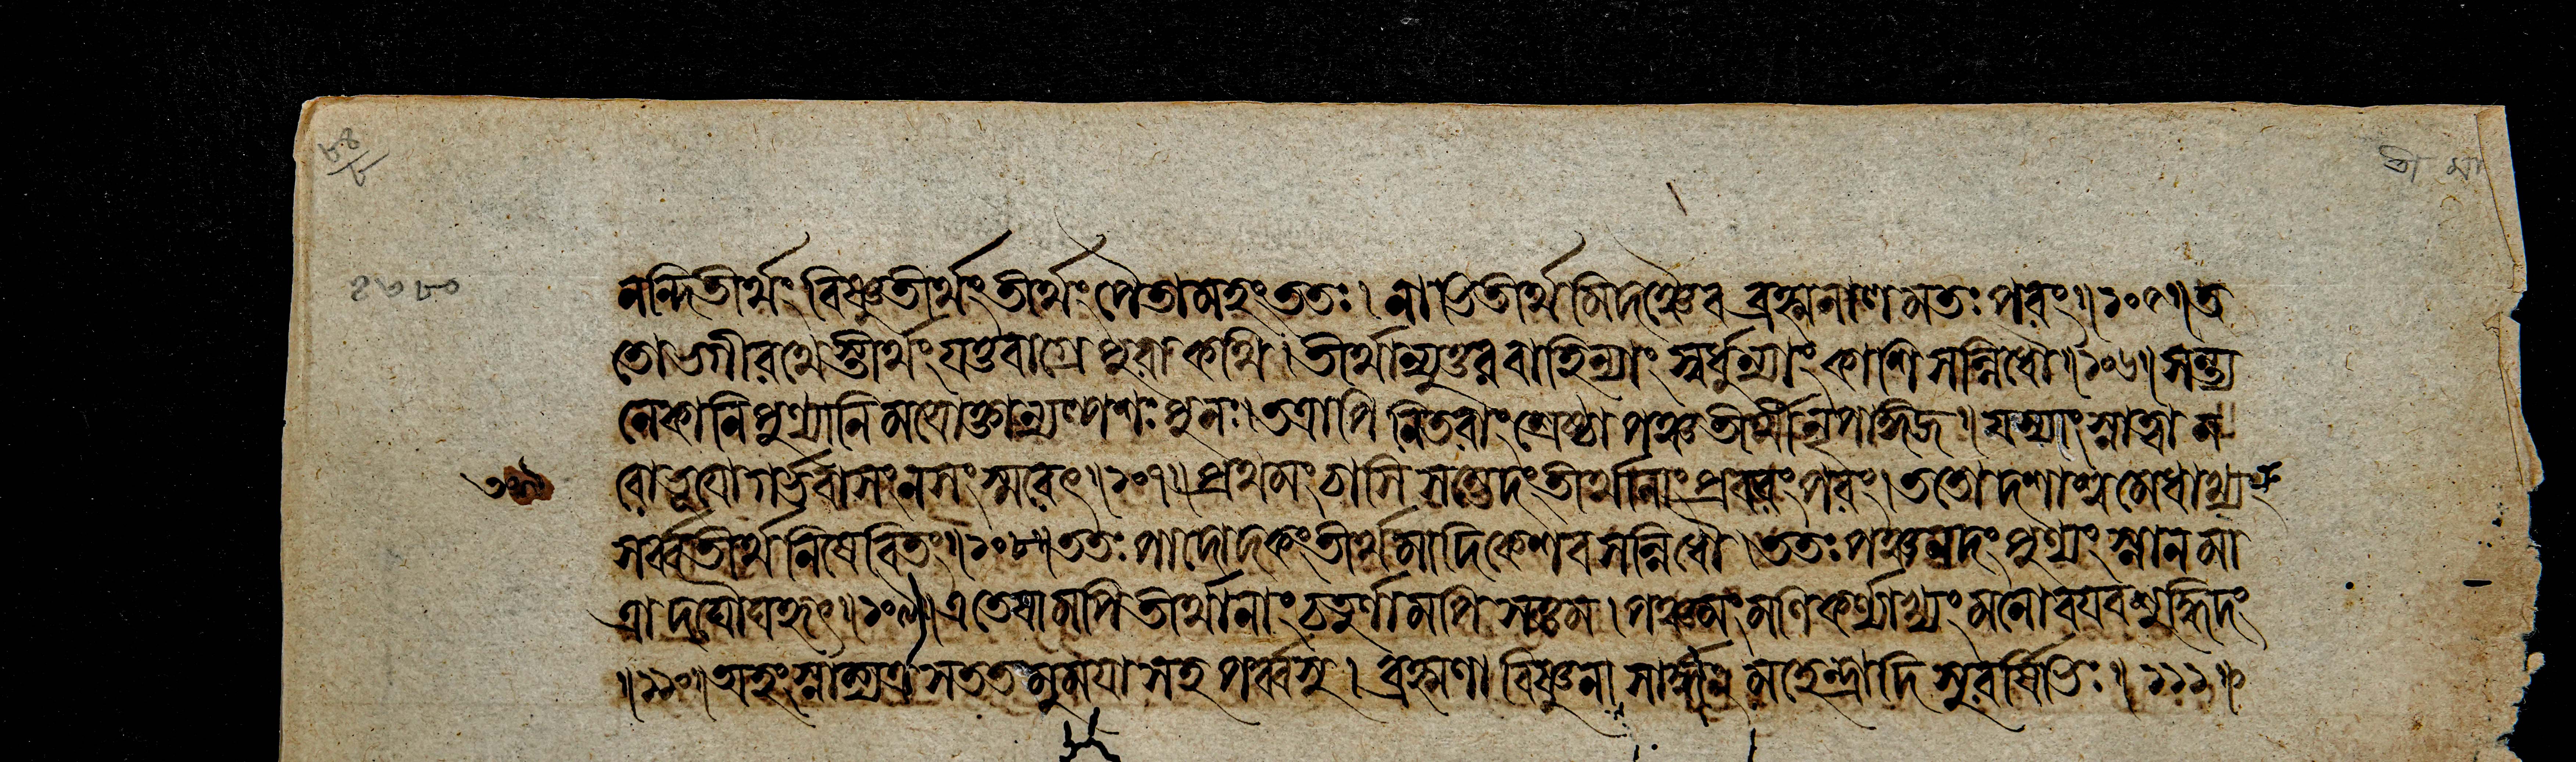 নন্দিতীর্থং বিষ্ণুতীর্থং তীর্থং পৈতামহং ততঃ। নাভিতীর্থমিদঞ্চৈব ব্রহ্মনালমতঃ পরং॥১০৫॥ত
তো ভগীরথে স্তীর্থং যত্তবাগ্রে পুরা কথি। তীর্থান্যুত্তরবাহিন্যাং স্বর্ধুন্যাং কাশিসন্নিধৌ॥১০৬॥সন্ত্য
নেকানি পুণ্যানি ময়োক্তান্যল্পশঃ পুনঃ। তত্রাপি নিতরাং শ্রেষ্ঠা পঞ্চতীর্থী নৃপাঙ্গজ। যস্যাং স্নাত্বা ন
রো ভূয়ো গর্ভবাসং ন সংস্মরেৎ॥১০৭॥প্রথমং চাসি সম্ভেদং তীর্থানাং প্রবরং পরং। ততো দশাশ্বমেধাখ্যং
সর্ব্বতীর্থনিষেবিতং॥১০৮॥ততঃ পাদোদকং তীর্থমাদিকেশবসন্নিধৌ। ততঃ পঞ্চনদং পুণ্যং স্নানমা
ত্রাদঘৌঘহৃৎ॥১০৯॥এতেষামপি তীর্থানাং চতুর্ণামপি সত্তম। পঞ্চমং মণিকর্ণ্যাখ্যং মনোবয়বশুদ্ধিদং
॥১১০॥অহং স্নাম্যত্র সততমুময়া সহ পর্ব্বসু। ব্রহ্মণা বিষ্ণুনা সার্দ্ধং মহেন্দ্রাদি সুরর্ষিভিঃ॥১১১॥